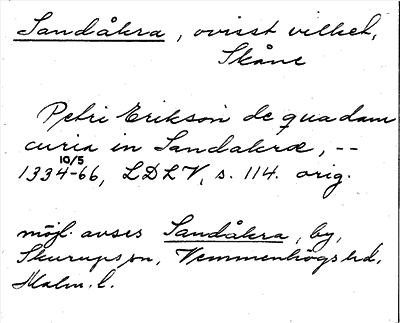 Sandåkra, ovisst vilket,
Skåne
Petri Erikson de quadam
curia in Sandakræ, --
10/5
1334-66, LDLV, s. 114. orig.
möjl. avses Sandåkra, by,
Skurups sn, Vemmenhögs hd,
Malm. l.